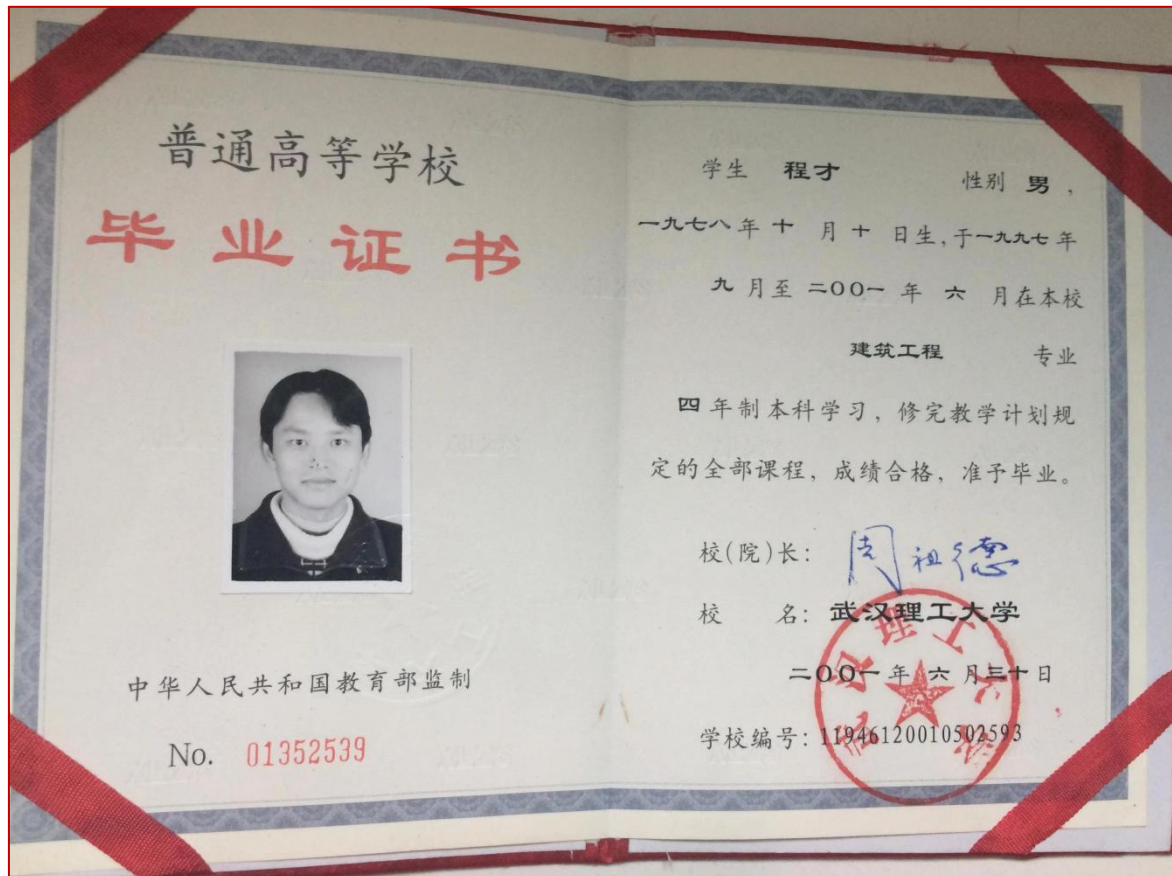 普通高等学校
毕业证书
中华人民共和国教育部监制
No. 01352539
学生 程才 性别 男,
一九七八年 十 月 十 日生,于一九九七年
九 月至 二〇〇一 年 六 月在本校
建筑工程 专业
四年制本科学习,修完教学计划规
定的全部课程,成绩合格,准予毕业。
校(院)长: 周祖德
校 名: 武汉理工大学
二〇〇一年 六 月三十日
学校编号: 11946120010502593
武汉理工大学